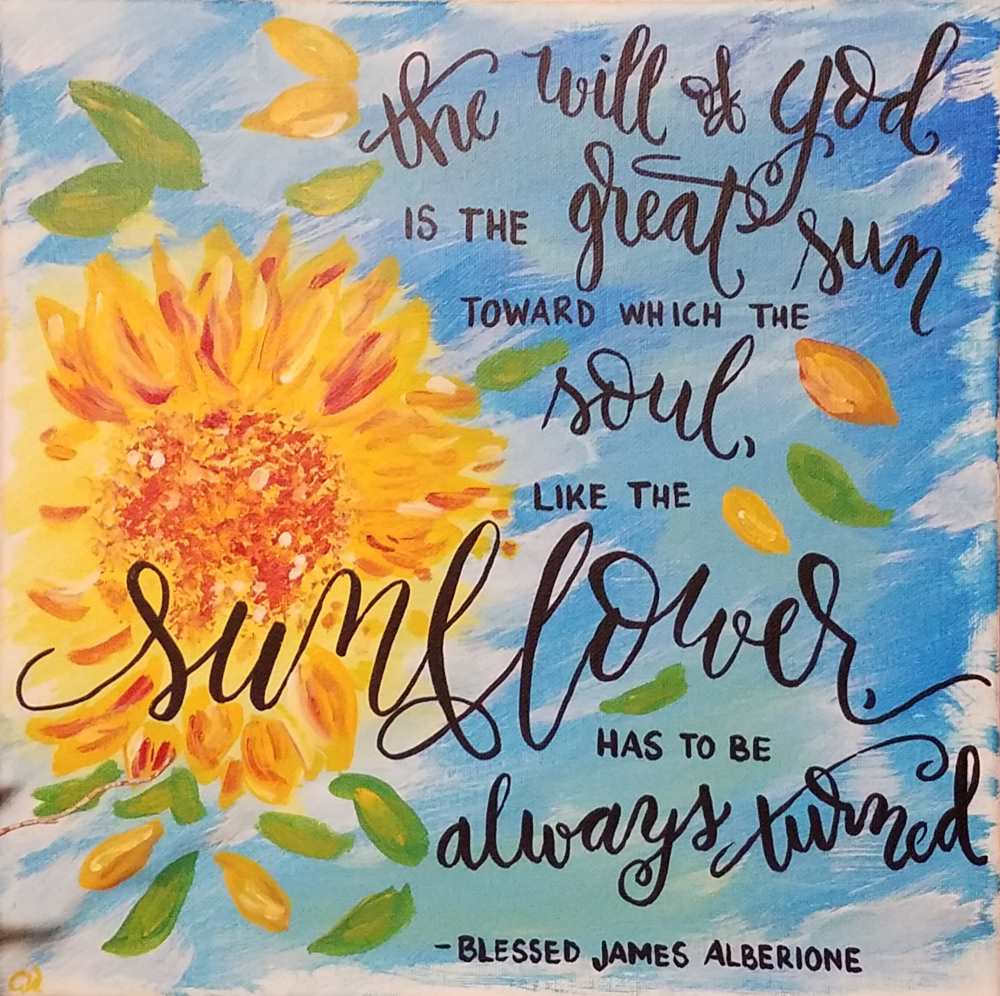 the will of God
IS THE great sun
TOWARD WHICH THE
soul,
LIKE THE
sunflower
HAS TO BE
always turned
-BLESSED JAMES ALBERIONE